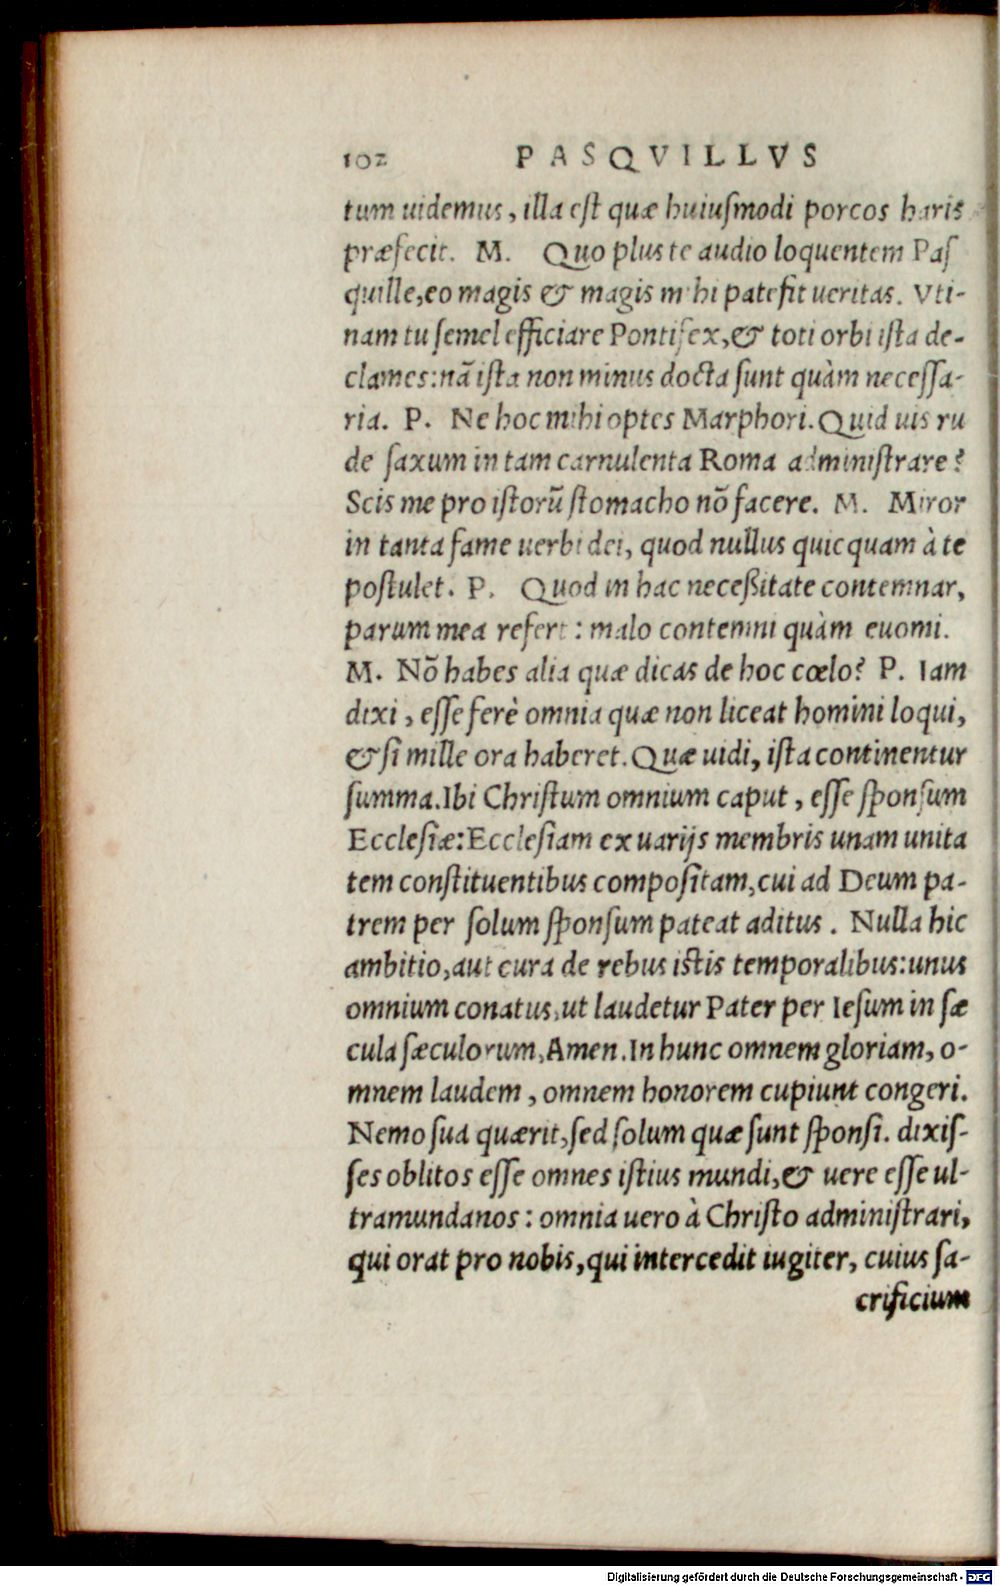 102 PASQVILLVS
tum uidemus, illa est quæ huiusmodi porcos haris
præfecit. M. Quo plus te audio loquentem Pas
quille, eo magis & magis mihi patefit ueritas. Vti-
nam tu semel efficiare Pontifex, & toti orbi ista de-
clames: nā ista non minus docta sunt quàm necessa-
ria. P. Ne hoc mihi optes Marphori. Quid uis ru
de saxum in tam carnulenta Roma administrare?
Scis me pro istorū stomacho nō facere. M. Miror
in tanta fame uerbi dei, quod nullus quicquam à te
postulet. P. Quod in hac neceßitate contemnar,
parum mea refert: malo contemni quàm euomi.
M. Nō habes alia quæ dicas de hoc cœlo? P. Iam
dixi, esse ferè omnia quæ non liceat homini loqui,
& si mille ora haberet. Quæ uidi, ista continentur
summa. Ibi Christum omnium caput, esse sponsum
Ecclesiæ: Ecclesiam ex uarijs membris unam unita
tem constituentibus compositam, cui ad Deum pa-
trem per solum sponsum pateat aditus. Nulla hic
ambitio, aut cura de rebus istis temporalibus: unus
omnium conatus, ut laudetur Pater per Iesum in sæ
cula sæculorum, Amen. In hunc omnem gloriam, o-
mnem laudem, omnem honorem cupiunt congeri.
Nemo sua quærit, sed solum quæ sunt sponsi. dixis-
ses oblitos esse omnes istius mundi, & uere esse ul-
tramundanos: omnia uero à Christo administrari,
qui orat pro nobis, qui intercedit iugiter, cuius sa-
crificium
Digitalisierung gefördert durch die Deutsche Forschungsgemeinschaft - DFG